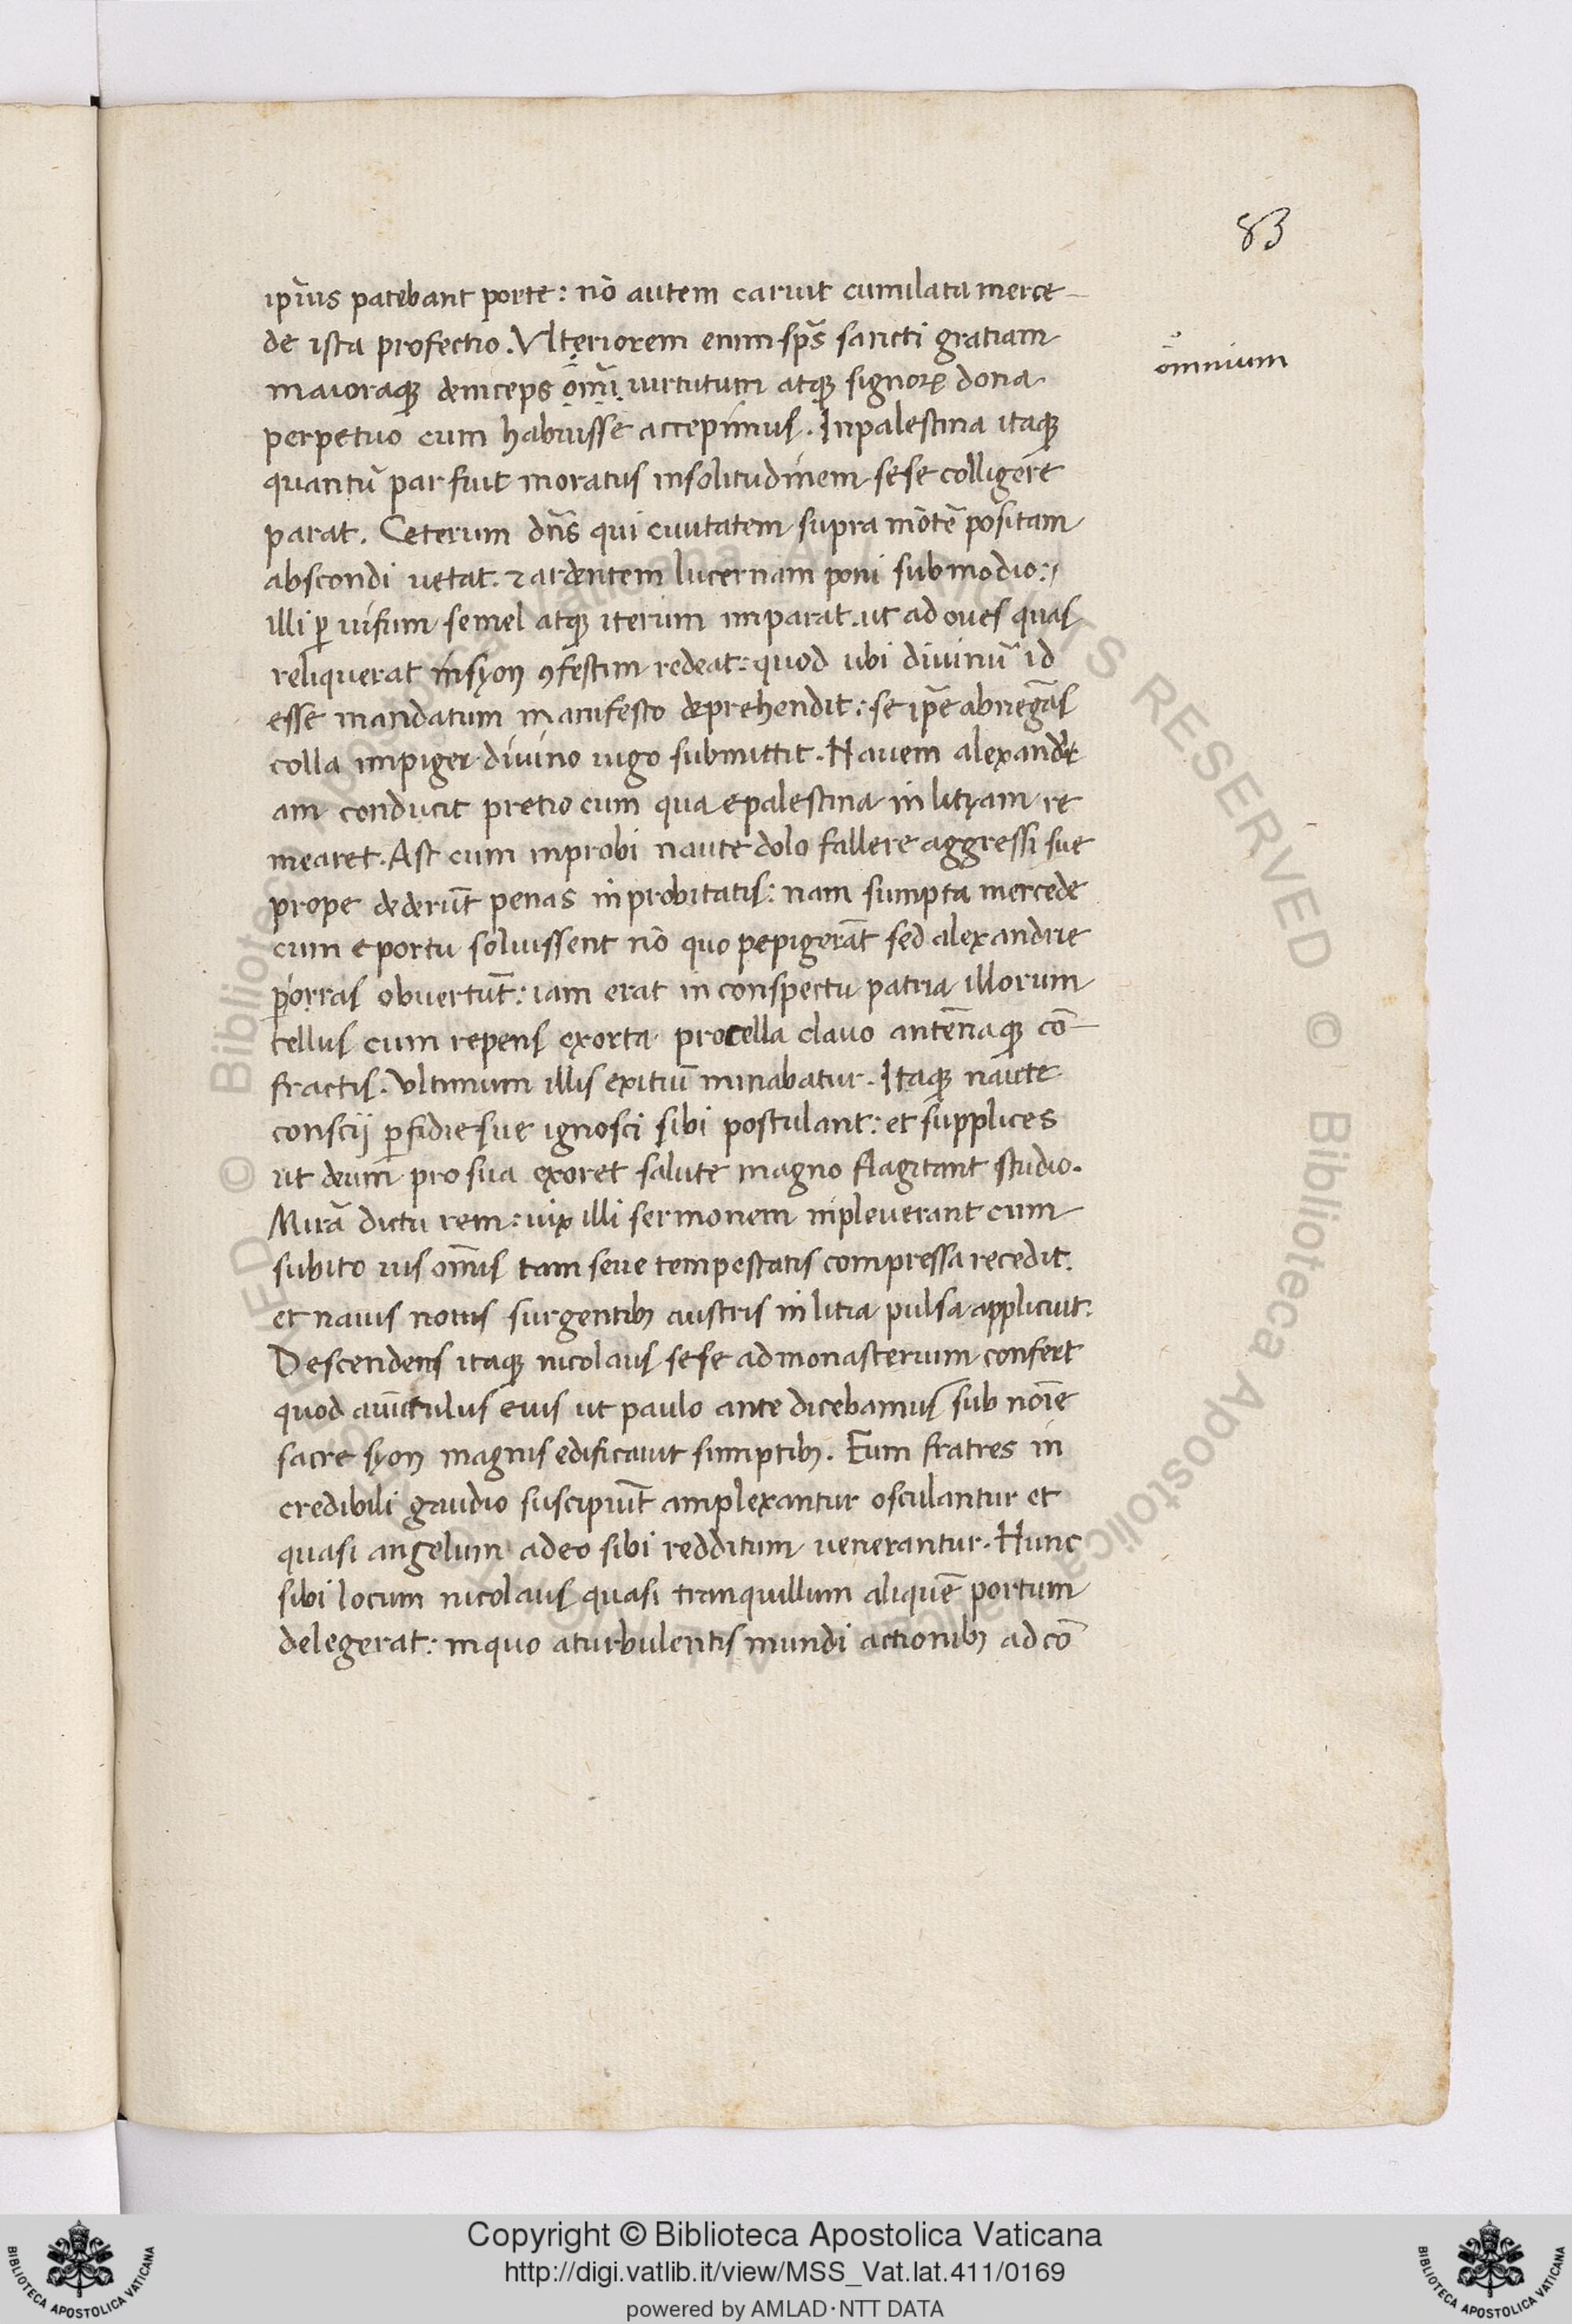 83
ip̅ius patebant porte: no̅ autem caruit cumulata merce-
de ista profectio. Vlteriorem enim sp̅s sancti gratiam
maioraqꝫ deinceps om̅i uirtutum atqꝫ signoꝝ dona
omnium
perpetuo eum habuisse accepimus. In palestina itaqꝫ
quantu̅ par fuit moratus in solitudinem sese colligere
parat. Ceterum dn̅s qui ciuitatem supra mo̅te̅ positam
abscondi uetat. ⁊ ardentem lucernam poni sub modio:
illi ꝑ uisum semel atqꝫ iterum imparat. ut ad oues quas
reliquerat in syon ꝯfestim redeat: quod ubi diuinu̅ id
esse mandatum manifesto deprehendit: se ip̅e abnega̅s
colla impiger diuino iugo submittit. Nauem alexandri
am conducit pretio cum qua e palestina in lityam re
mearet. Ast cum inprobi naute dolo fallere aggressi sue
prope dederu̅t penas inprobitatis: nam sumpta mercede
cum e portu soluissent no̅ quo pepigera̅t sed alexandrie
ꝓorras obuertu̅t: iam erat in conspectu patria illorum
tellus cum repens exorta procella clauo ante̅naqꝫ co̅-
fractis. Vltimum illis exitiu̅ minabatur. Itaqꝫ naute
conscij ꝑfidie sue ignosci sibi postulant: et supplices
ut deum pro sua exoret salute magno flagitant studio.
Mira̅ dictu rem: uix illi sermonem inpleuerant cum
subito uis om̅is tam seue tempestatis compressa recedit.
et nauis notus surgentibꝫ austris in litia pulsa applicuit:
Descendens itaqꝫ nicolaus sese ad monasterium confert
quod auu̅culus eius ut paulo ante dicebamus sub no̅ie
sacre syon magnis edificauit sumptibꝫ. Eum fratres in
credibili gaudio suscipiu̅t amplexantur osculantur et
quasi angelum a deo sibi redditum uenerantur. Hunc
sibi locum nicolaus quasi tranquillum alique̅ portum
delegerat: in quo a turbulentis mundi actionibꝫ ad co̅
Copyright © Biblioteca Apostolica Vaticana
http://digi.vatlib.it/view/MSS_Vat.lat.411/0169
powered by AMLAD·NTT DATA